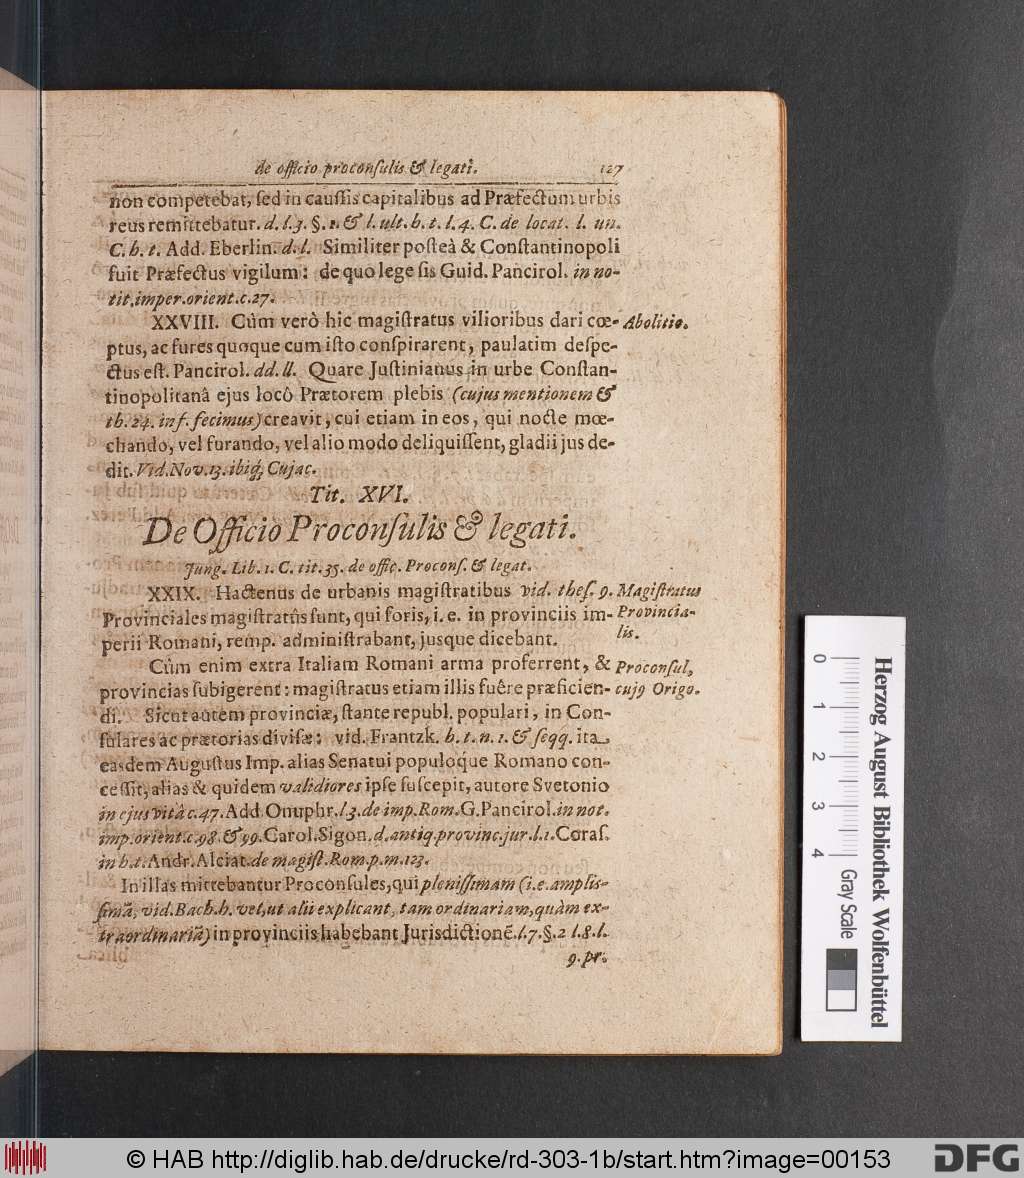 de officio proconſulis & legati. 127
non competebat, ſed in cauſſis capitalibus ad Præfectum urbis
reus remittebatur. d. l. 3. §. 1. & l. ult. h. t. l. 4. C. de locat. l. un.
C. h. t. Add. Eberlin. d. l. Similiter poſteà & Conſtantinopoli
fuit Præfectus vigilum: de quo lege ſis Guid. Pancirol. in no-
tit. imper. orient. c. 27.
XXVIII. Cûm verò hic magiſtratus vilioribus dari cœ- Abolitio.
ptus, ac fures quoque cum iſto conſpirarent, paulatim deſpe-
ctus eſt. Pancirol. dd. ll. Quare Juſtinianus in urbe Conſtan-
tinopolitanâ ejus locô Prætorem plebis (cujus mentionem &
th. 24. inf. fecimus) creavit, cui etiam in eos, qui nocte mœ-
chando, vel furando, vel alio modo deliquiſſent, gladii jus de-
dit. Vid. Nov. 13. ibiq́; Cujac.
Tit. XVI.
De Officio Proconſulis & legati.
Jung. Lib. 1. C. tit. 35. de offic. Proconſ. & legat.
XXIX. Hactenus de urbanis magiſtratibus vid. theſ. 9. Magiſtratus
Provinciales magiſtratûs ſunt, qui foris, i. e. in provinciis im- Provincia-
perii Romani, remp. adminiſtrabant, jusque dicebant. lis.
Cûm enim extra Italiam Romani arma proferrent, & Proconſul,
provincias ſubigerent: magiſtratus etiam illis fuêre præficien- cujꝯ Origo.
di. Sicut autem provinciæ, ſtante republ. populari, in Con-
ſulares ac prætorias diviſæ: vid. Frantzk. h. t. n. 1. & ſeqq. ita
easdem Auguſtus Imp. alias Senatui populoq́ue Romano con-
ceſſit, alias & quidem validiores ipſe ſuſcepit, autore Svetonio
in ejus vitâ c. 47. Add Onuphr. l 3. de imp. Rom. G. Pancirol. in not.
imp. orient. c. 98. & 99. Carol. Sigon. d. antiq. provinc. jur. l. 1. Coraſ.
in h. t. Andr. Alciat. de magiſt. Rom. p. m. 123.
In illas mittebantur Proconſules, qui pleniſſimam (i. e. ampliſ-
ſimã, vid. Bach. h. vel, ut alii explicant, tam ordinariam, quàm ex-
traordinariã) in provinciis habebant Jurisdictionẽ. l. 7. §. 2 l. 8. l.
9. pr.
0 1 2 3 4
Gray Scale
Herzog August Bibliothek Wolfenbüttel
© HAB http://diglib.hab.de/drucke/rd-303-1b/start.htm?image=00153
DFG